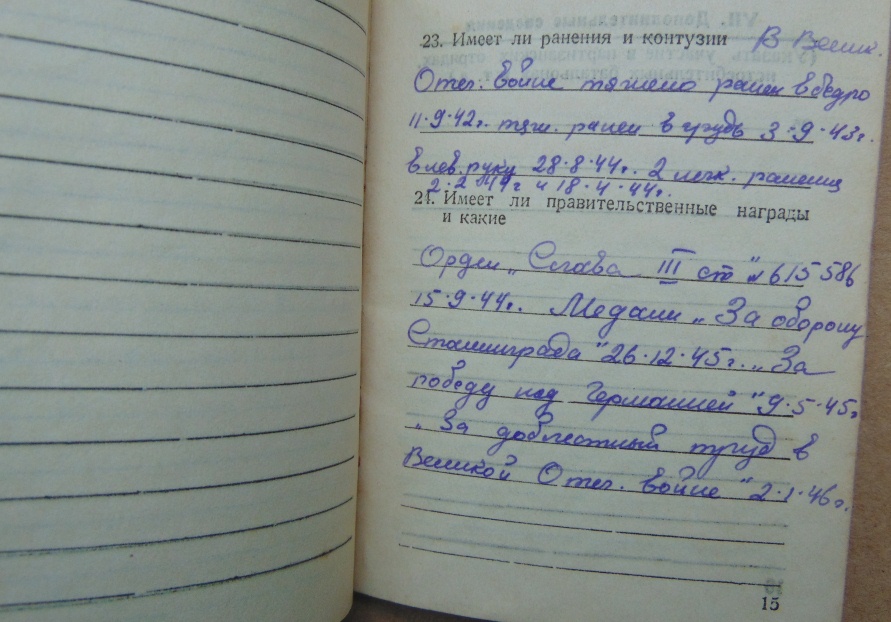 23. Имеет ли ранения и контузии В Велик.
Отеч. войне тяжело ранен в бедро
11.9.42г. тяж. ранен в грудь 3.9.43г.
в лев. руку 28.8.44г. 2 легк. ранения
2.2.44г и 18.4.44г.
24. Имеет ли правительственные награды
и какие
Орден „Слава III ст" № 615586
15.9.44г. Медали „За оборону
Сталинграда" 26.12.45г. „За
победу над Германией" 9.5.45г
„За доблестный труд в
Великой Отеч. войне" 2.1.46г.
15